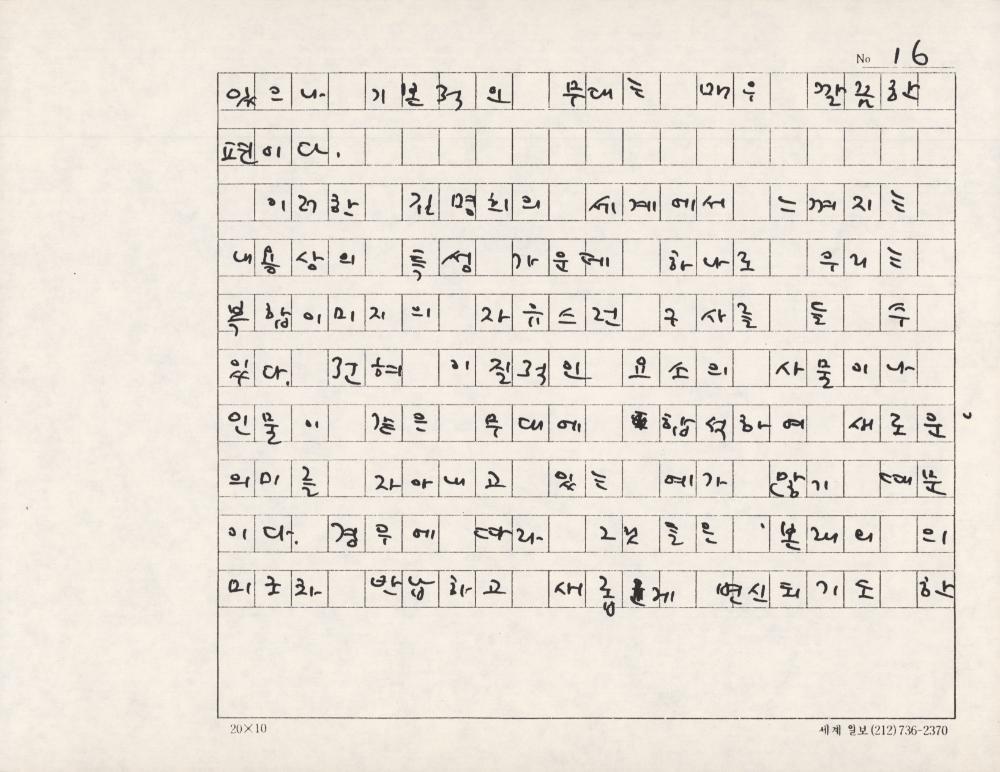 No 16
있으나 기본적인 무대는 매우 깔끔한
편이다.
이러한 전명희의 세계에서 느껴지는
내용상의 특성 가운데 하나로 우리는
복합이미지의 자유스런 구사를 들 수
있다. 전혀 이질적인 요소의 사물이나
인물이 같은 무대에 합석하여 새로운
의미를 자아내고 있는 예가 많기 때문
이다. 경우에 따라 그것들은 본래의 의
미조차 반납하고 새롭게 변신되기도 한
20×10
세계 일보 (212) 736-2370